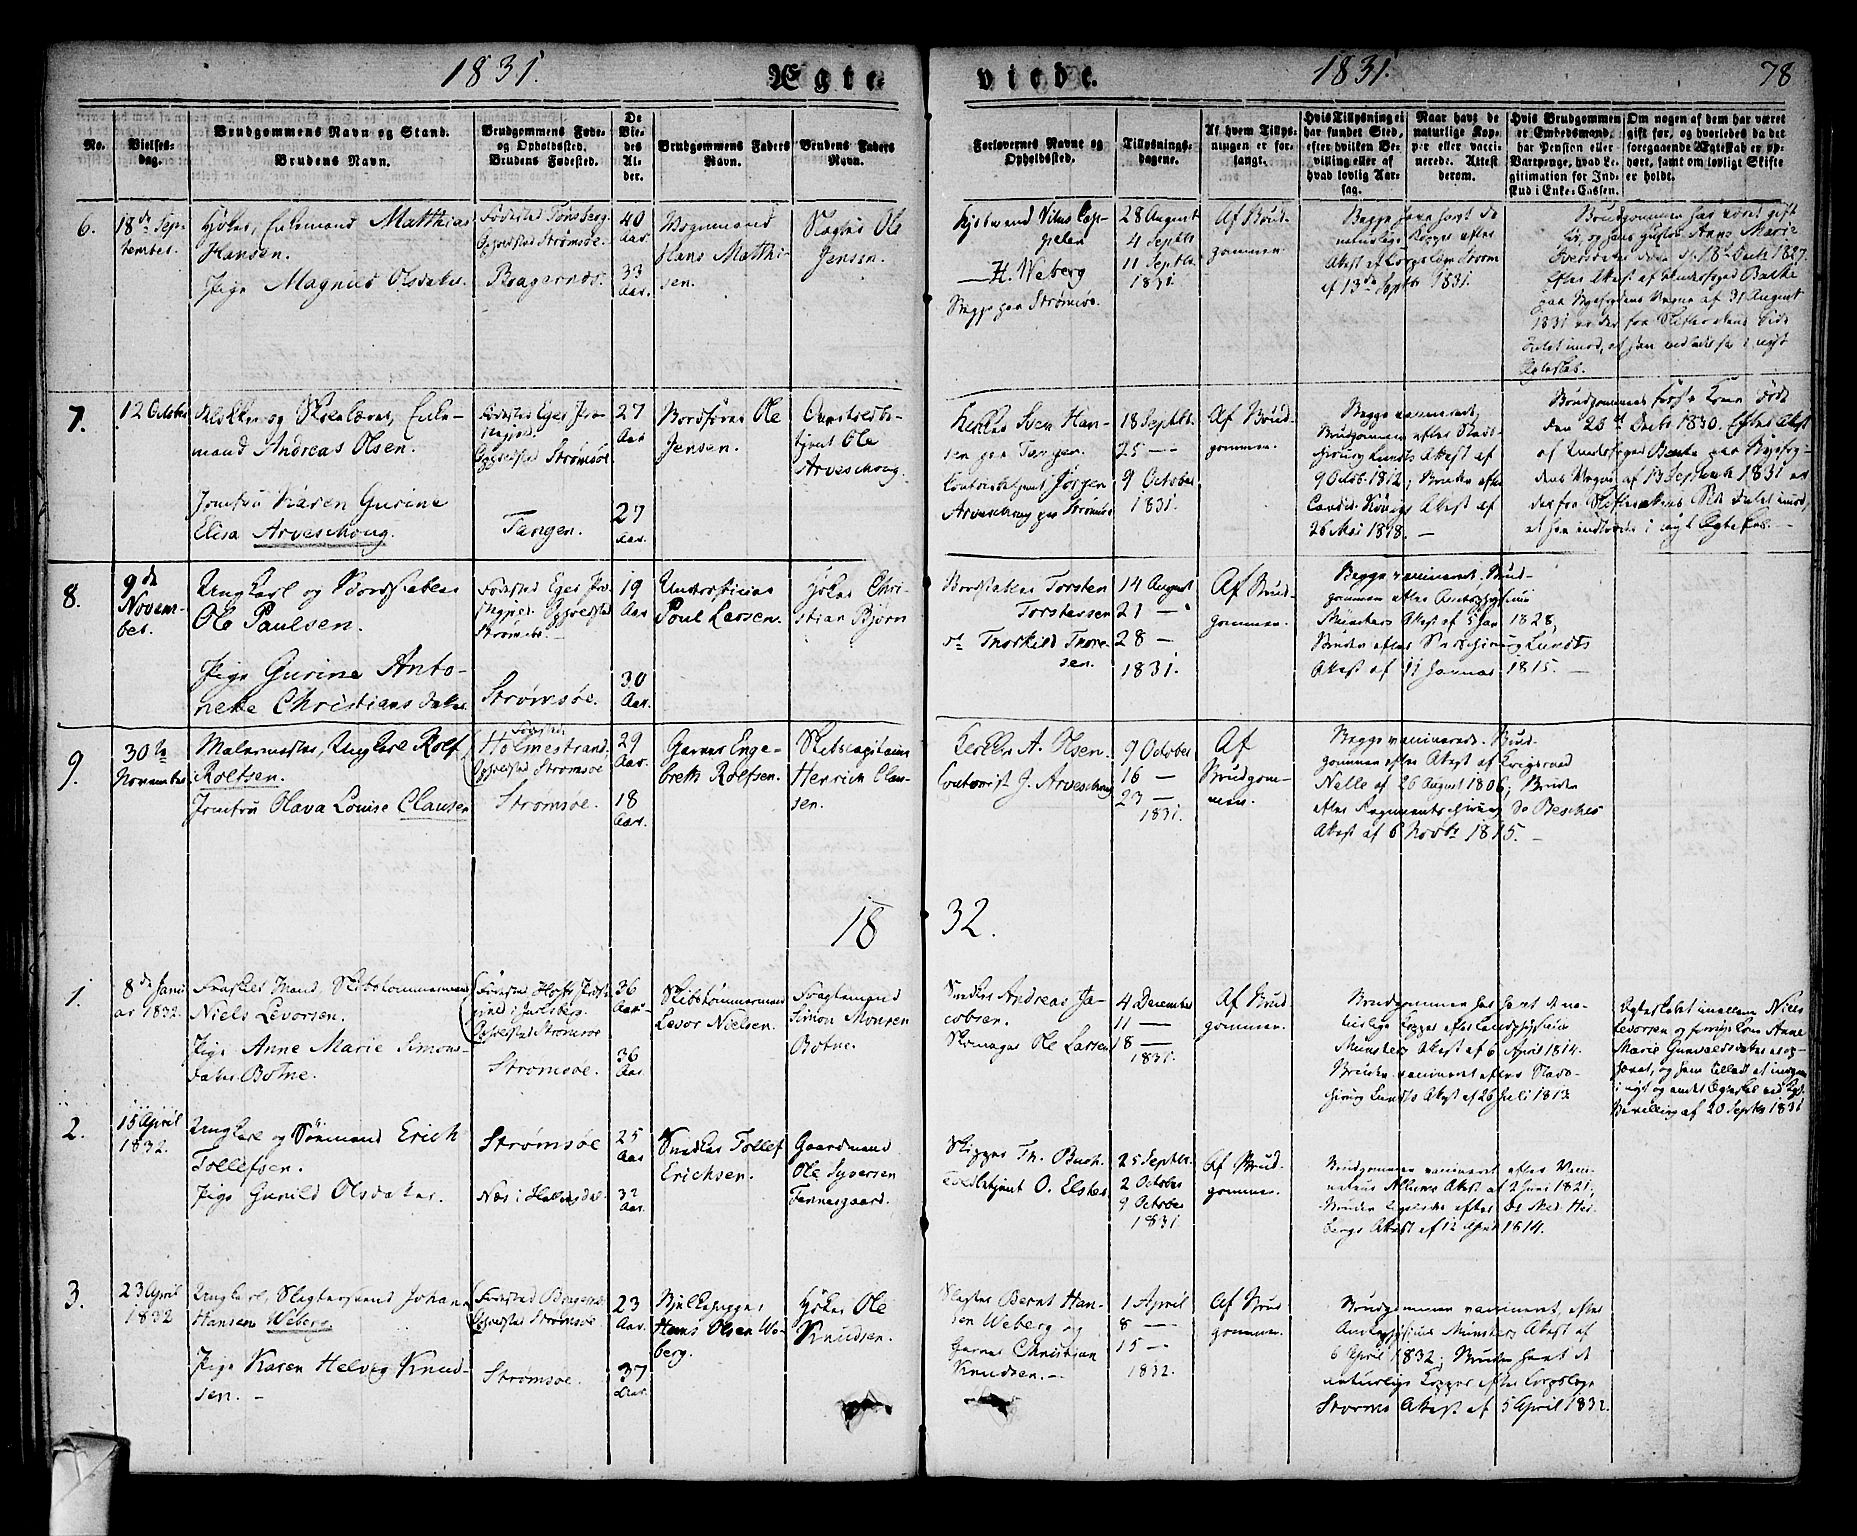 1831.
Ægte-
viede.
1831.
78
No.
Vielses-
dag.
Brudgommens Navn og Stand.
Brudens Navn.
Brudgommens Føde-
og Opholdssted.
Brudens Fødested.
De
Vie-
des
Al-
der.
Brudgommens Faders
Navn.
Brudens Faders
Navn.
Forlovernes Navne og
Opholdssted.
Tillysnings-
dagene.
Af hvem Tillys-
ningen er for-
langt.
Hvis Tillysning ei
har fundet Sted,
efter hvilken Be-
villing eller af
hvad lovlig Aar-
sag.
Naar havt de
naturlige Kop-
per eller vacci-
nerede. Attest
derom.
Hvis Brudgommen
er Embedsmand,
har Pension eller
Vartpenge, hvad Le-
gitimation for Ind-
skud i Enke-Cassen.
Om nogen af dem har været
gift før, og hvorledes da det
foregaaende Ægteskab er op-
hørt, samt om lovligt Skifte
er holdt.
6.
18de Sep-
tember.
Høker, Enkemand Matthias
Hansen.
Pige Magnild Olsdatter.
Fødested Tønsberg
Opholdssted Strømsøe.
Bragernes.
40
Aar.
33
Aar.
Vognmand
Hans Matthi-
sen.
Slagter Ole
Jensen.
Kjøbmand
H. Weberg
Begge paa Strømsøe.
28 August
4 Septbr.
11 Septbr.
1831.
Af Brud-
gommen.
Begge have havt de
naturlige Kopper efter
Attest af Storm
af 13de Septbr 1831.
Brudgommen har været gift
før, og hans Hustru Anne Marie
døde den 18de Decbr 1827.
Efter Attest af
paa Byefogdens Vegne af 31 August
1831 er der fra Skifterettens Side
Intet imod, at han indlader sig i nyt
Ægteskab.
7.
12 October
Klokker og Skolelærer, Enke-
mand Andreas Olsen.
Jomfru Karen Gurine
Elisa Arveschoug.
Fødested Eger Præ-
stegjeld.
Opholdssted Strømsøe.
Tangen.
27
Aar
27
Aar.
Bordskriver Ole
Jensen.
Ole
Arveschoug.
Svend Han-
sen paa Tangen.
Jørgen
Arveschoug paa Strømsøe
18 Septbr.
25 — —
9 October
1831.
Af Brud-
gommen.
Begge vaccinerede,
Brudgommen efter Stads-
chirurg Lundts Attest af
9 Octob. 1812; Bruden efter
Candid. Königs Attest af
26 Mai 1818. —
Brudgommens første Kone døde
den 23de Decbr 1830. Efter Attest
af paa Byefog-
dens Vegne af 13 Septemb 1831 er
der fra Skifterettens Side Intet imod
at han indtræder i nyt Ægteskab.
8.
9de
Novem-
ber.
Ungkarl og Bordstabler
Ole Paulsen.
Pige Gurine Anto-
nette Christiansdatter
Fødested Eger Præ-
stegjeld. Opholdssted
Strømsøe.
Strømsøe.
19
Aar
30
Aar.
Poul Larsen.
Høker Chri-
stian Bjørn
Bordstabler Torsten
Torstensen
do Thorkild Thore-
sen.
14 August
21 —
28 —
1831.
Af Brud-
gommen.
Begge vaccineret. Brud-
gommen efter Amtsphysicus
Münsters Attest af 5 Jan 1828,
Bruden efter Stadschirurg Lundts
Attest af 11 Januar 1815. —
9.
30te
November
Malermester, Ungkarl Rolf
Rolfsen.
Jomfru Olava Louise Clausen
Fødested
Holmestrand
Opholdssted Strømsøe
Strømsøe.
29
Aar.
18
Aar.
Garver Enge-
breth Rolfsen.
Skibscapitain
Henrich Clau-
sen.
A. Olsen.
Contorist J. Arveschoug
9 October
16 —
23 —
1831.
Af
Brudgom-
men.
Begge vaccinerede. Brud-
gommen efter Attest af
Nelle af 26 August 1806; Bruden
efter Regimentschirurg de Besches
Attest af 6 Novbr 1815. —
18
32.
1.
8de Janu-
ar 1832.
Fraskilt Mand, Skibstømmermand
Niels Levorsen.
Pige Anne Marie Simons-
datter Botne.
Fødested Hofs Præste-
gjeld i Jarlsberg.
Opholdssted Strømsøe
Strømsøe.
36
Aar.
36
Aar.
Skibstømmermand
Levor Nielsen.
Fragtemand
Simon Monsen
Botne.
Snedker Andreas Ja-
cobsen.
Skomager Ole Larsen
4 December
11 —
18 —
1831.
Af Brud-
gommen.
Brudgommen har havt de na-
turlige Kopper efter Landphysicus
Münsters Attest af 6 April 1814.
Bruden vaccineret efter Stads-
chirurg Lundts Attest af 26 Juli 1813.
Ægteskabet imellem Niels
Levorsen og forrige Kone Anne
Marie Gunvaldsdatter er op-
hævet, og ham tilladt at indgaae
i nyt og andet Ægteskab ved Kgl.
Bevilling af 20 Septbr 1831
2.
15 April
1832.
Ungkarl og Sømand Erich
Tollefsen.
Pige Gunild Olsdatter.
Strømsøe
Næs i Hallingdal.
25
Aar
32
Aar.
Snedker Tollef
Erichsen.
Gaardmand
Ole Syversen
Tennesgaard.
Skipper Th. Buch.
O. Elster
25 Septbr.
2 October
9 October
1831.
Af Brud-
gommen.
Brudgommen vaccineret efter
Attest af 2 Juni 1821;
Bruden ligeledes efter
Attest af 12 April 1814.
3.
23 April
1832
Ungkarl, Slagtersvend Johan
Hansen Weberg.
Pige Karen Helvig Knud-
sen. —
Fødested Bragernes
Opholdssted Strømsøe
Strømsøe.
23
Aar.
37
Aar.
Hans Olsen We-
berg.
Høker Ole
Knudsen.
Slagter Bernt Han-
sen Weberg og
Garver Christian
Knudsen. —
1 April
8 —
15 —
1832.
Af Brud-
gommen.
Brudgommen vaccineret efter
Amtsphysicus Münsters Attest af
6 April 1832; Bruden havt de
naturlige Kopper efter Corpslæge
Storms Attest af 5 April 1832.